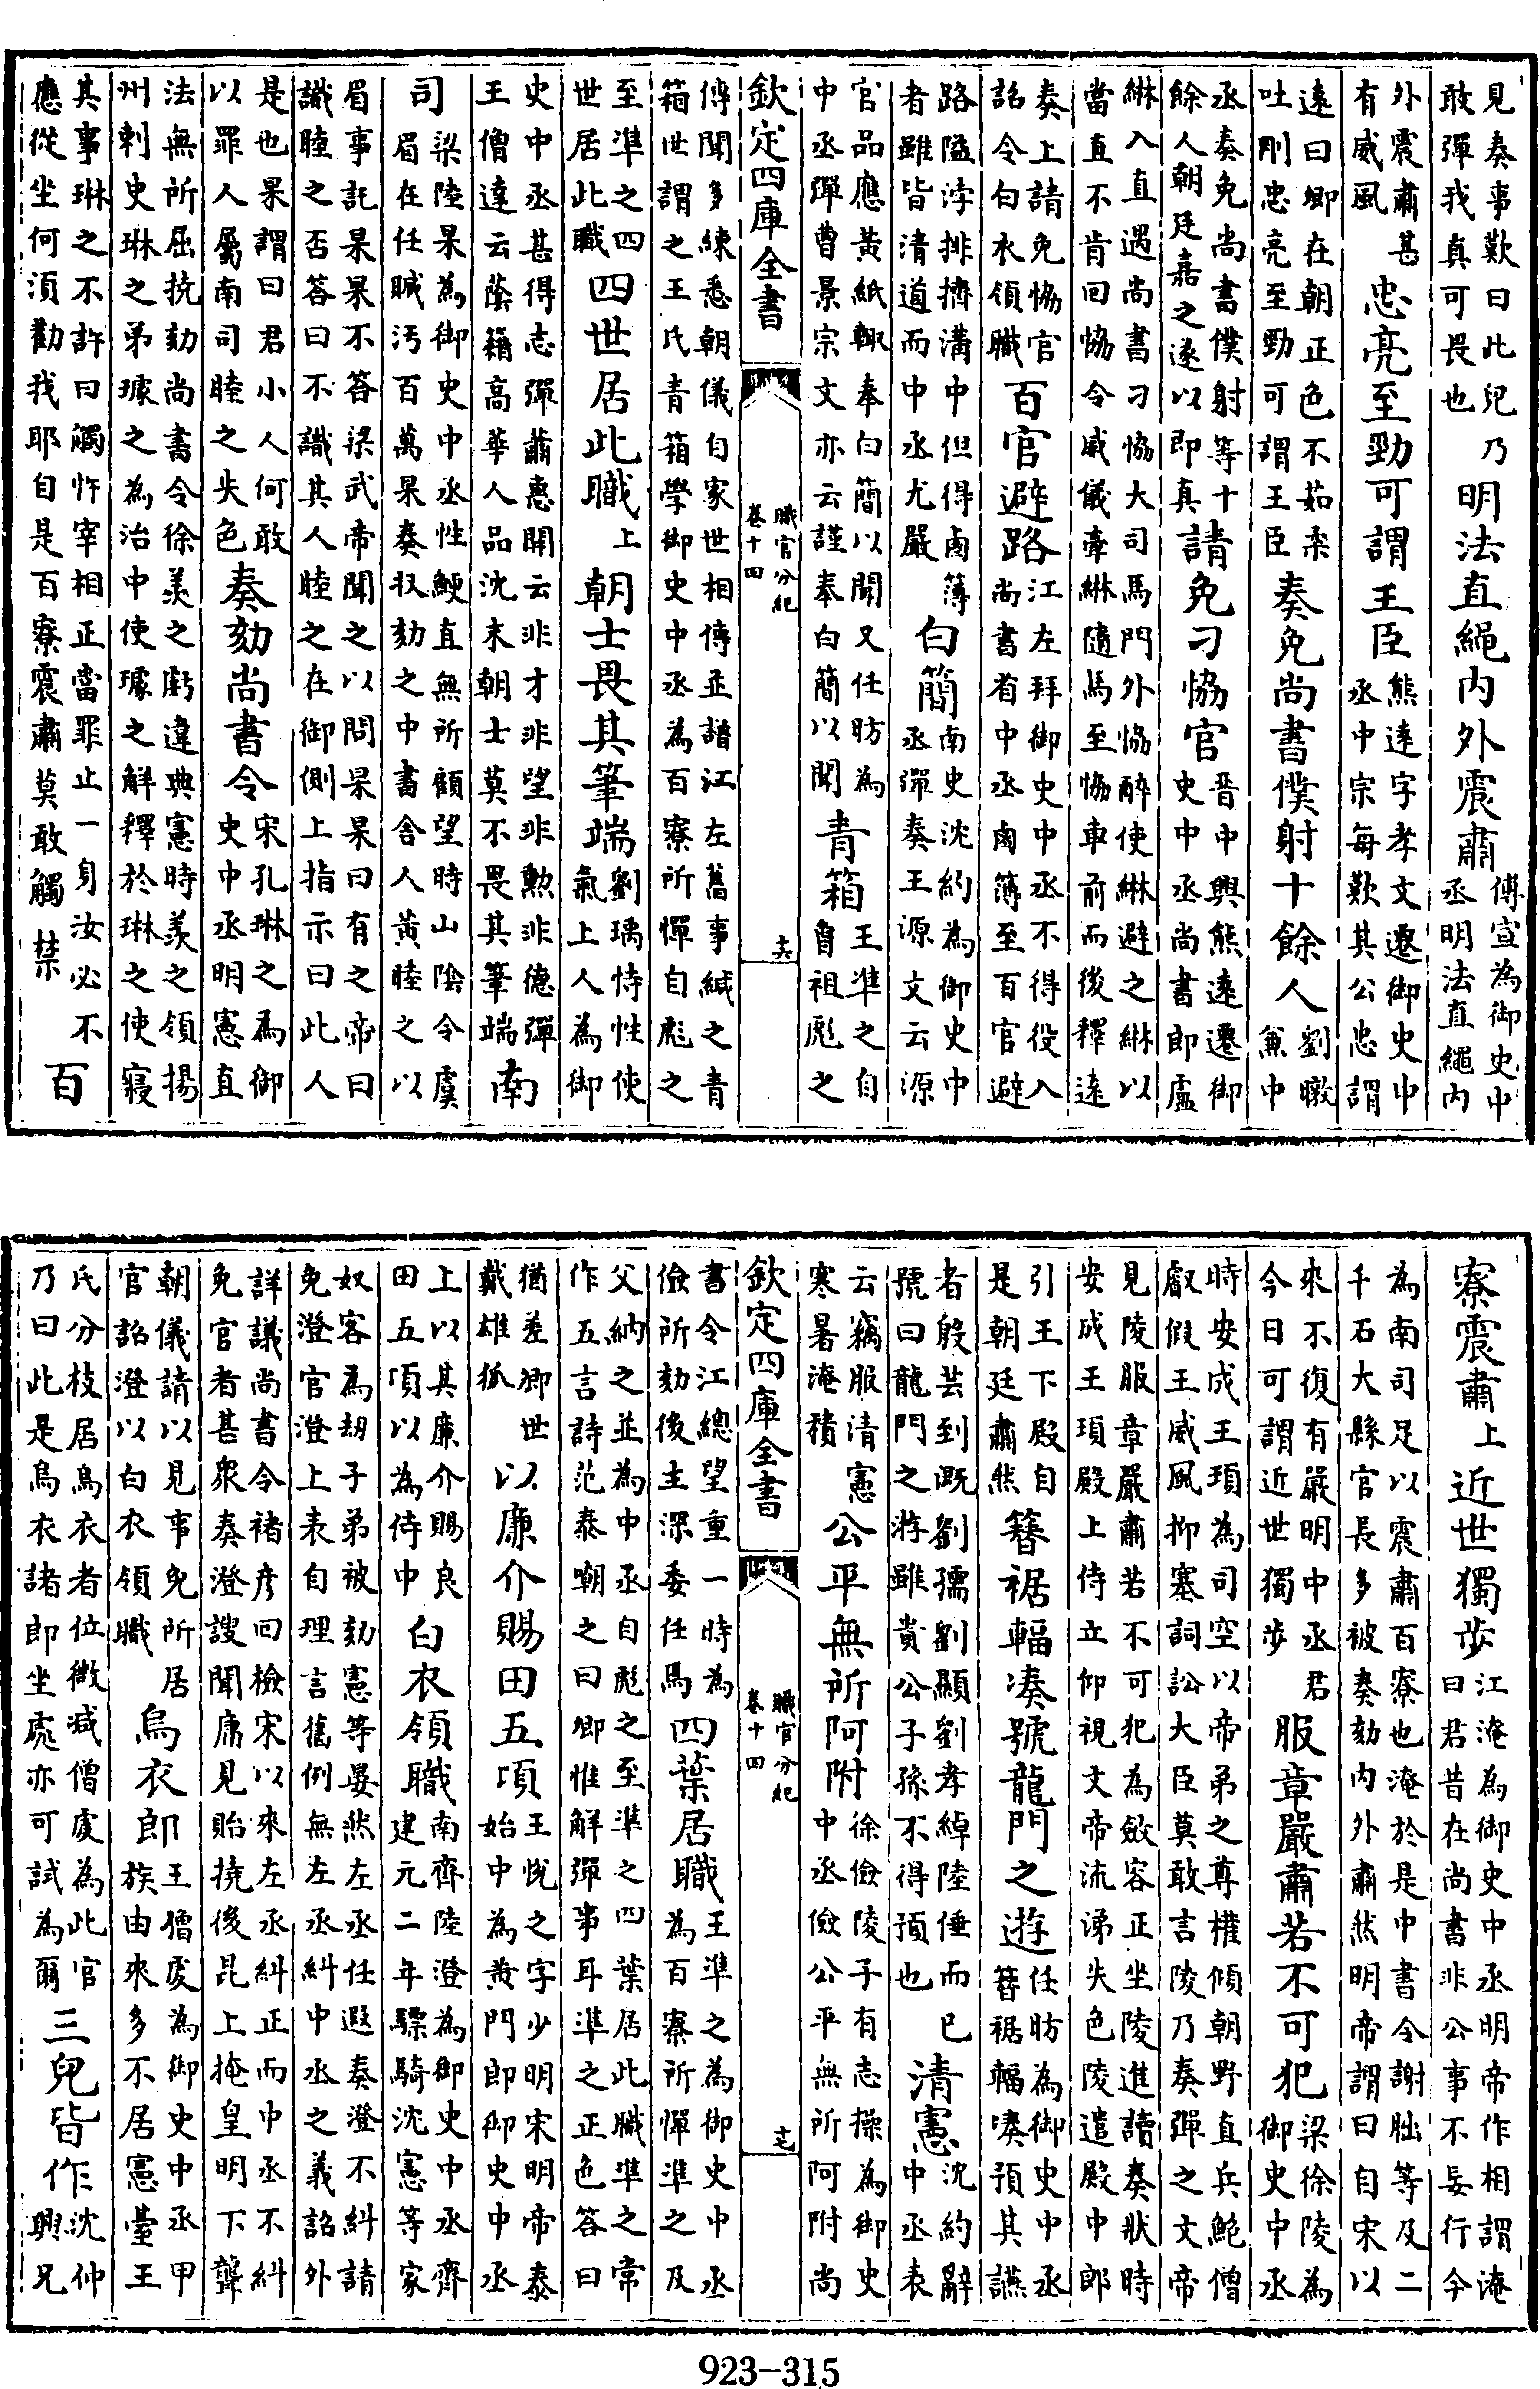 見奏事歎曰此兒乃
敢彈我真可畏也
明法直繩内外震肅
傅宣為御史中
丞明法直繩内
外震肅甚
有威風
忠亮至勁可謂王臣
熊遠字孝文遷御史中
丞中宗每歎其公忠謂
遠曰卿在朝正色不茹柔
吐剛忠亮至勁可謂王臣
奏免尚書僕射十餘人
劉暾
兼中
丞奏免尚書僕射等十
餘人朝廷嘉之遂以即真
請免刁協官
晋中興熊遠遷御
史中丞尚書郎盧
綝入直遇尚書刁協大司馬門外協醉使綝避之綝以
當直不肯回協令威儀牽綝隨馬至協車前而後釋遠
奏上請免協官
詔令白衣領職
百官避路
江左拜御史中丞不得役入
尚書省中丞鹵簿至百官避
路隘涬排擠溝中但得鹵簿
者雖皆清道而中丞尤嚴
白簡
南史沈約為御史中
丞彈奏王源文云源
官品應黄紙輙奉白簡以聞又任昉為
中丞彈曹景宗文亦云謹奉白簡以聞
青箱
王準之自
曾祖彪之
欽定四庫全書
職官分紀
卷十四
十六
傅聞多練悉朝儀自家世相傳並諳江左舊事緘之青
箱世謂之王氏青箱學御史中丞為百寮所憚自彪之
至準之四
世居此職
四世居此職
上
朝士畏其筆端
劉瑀恃性使
氣上人為御
史中丞甚得志彈蕭惠開云非才非望非勲非德彈
王僧達云蔭籍高華人品沈末朝士莫不畏其筆端
南
司
梁陸杲為御史中丞性鯁直無所顧望時山陰令虞
眉在任贓汚百萬杲奏收劾之中書舍人黄睦之以
眉事託杲杲不答梁武帝聞之以問杲杲曰有之帝曰
識睦之否答曰不識其人睦之在御側上指示曰此人
是也杲謂曰君小人何敢
以罪人屬南司睦之失色
奏劾尚書令
宋孔琳之為御
史中丞明憲直
法無所屈撓劾尚書令徐羨之虧違典憲時羨之領揚
州刺史琳之弟璩之為治中使璩之解釋於琳之使寢
其事琳之不許曰觸忤宰相正當罪止一身汝必不
應從坐何須勸我耶自是百寮震肅莫敢觸禁
百
寮震肅
上
近世獨步
江淹為御史中丞明帝作相謂淹
曰君昔在尚書非公事不妄行今
為南司足以震肅百寮也淹於是中書令謝朏等及二
千石大縣官長多被奏劾内外肅然明帝謂曰自宋以
來不復有嚴明中丞君
今日可謂近世獨步
服章嚴肅若不可犯
梁徐陵為
御史中丞
時安成王頊為司空以帝弟之尊權傾朝野直兵鮑僧
叡假王威風抑塞詞訟大臣莫敢言陵乃奏彈之文帝
見陵服章嚴肅若不可犯為斂容正坐陵進讀奏狀時
安成王頊殿上侍立仰視文帝流涕失色陵遣殿中郎
引王下殿自
是朝廷肅然
簪裾輻凑號龍門之遊
任昉為御史中丞
簪裾輻凑預其讌
者殷芸到溉劉孺劉顯劉孝綽陸倕而已
號曰龍門之游雖貴公子孫不得預也
清憲
沈約辭
中丞表
云竊服清憲
寒暑淹積
公平無所阿附
徐儉陵子有志操為御史
中丞儉公平無所阿附尚
欽定四庫全書
職官分紀
卷十四
十七
書令江總望重一時為
儉所劾後主深委任馬
四葉居職
王準之為御史中丞
為百寮所憚準之及
父納之並為中丞自彪之至準之四葉居此職準之常
作五言詩范泰嘲之曰卿惟解彈事耳準之正色答曰
猶差卿世
戴雄狐
以廉介賜田五頃
王悅之字少明宋明帝泰
始中為黄門郎御史中丞
上以其廉介賜良
田五頃以為侍中
白衣領職
南齊陸澄為御史中丞齊
建元二年驃騎沈憲等家
奴客為刼子弟被劾憲等晏然左丞任遐奏澄不糾請
免澄官澄上表自理言舊例無左丞糾中丞之義詔外
詳議尚書令褚彦回檢宋以來左丞糾正而中丞不糾
免官者甚衆奏澄謏聞庸見貽撓後昆上掩皇明下聾
朝儀請以見事免所居
官詔澄以白衣領職
烏衣郎
王僧虔為御史中丞甲
族由來多不居憲臺王
氏分枝居烏衣者位微減僧虔為此官
乃曰此是烏衣諸郎坐處亦可試為爾
三兒皆作
沈仲
興兄
923-315